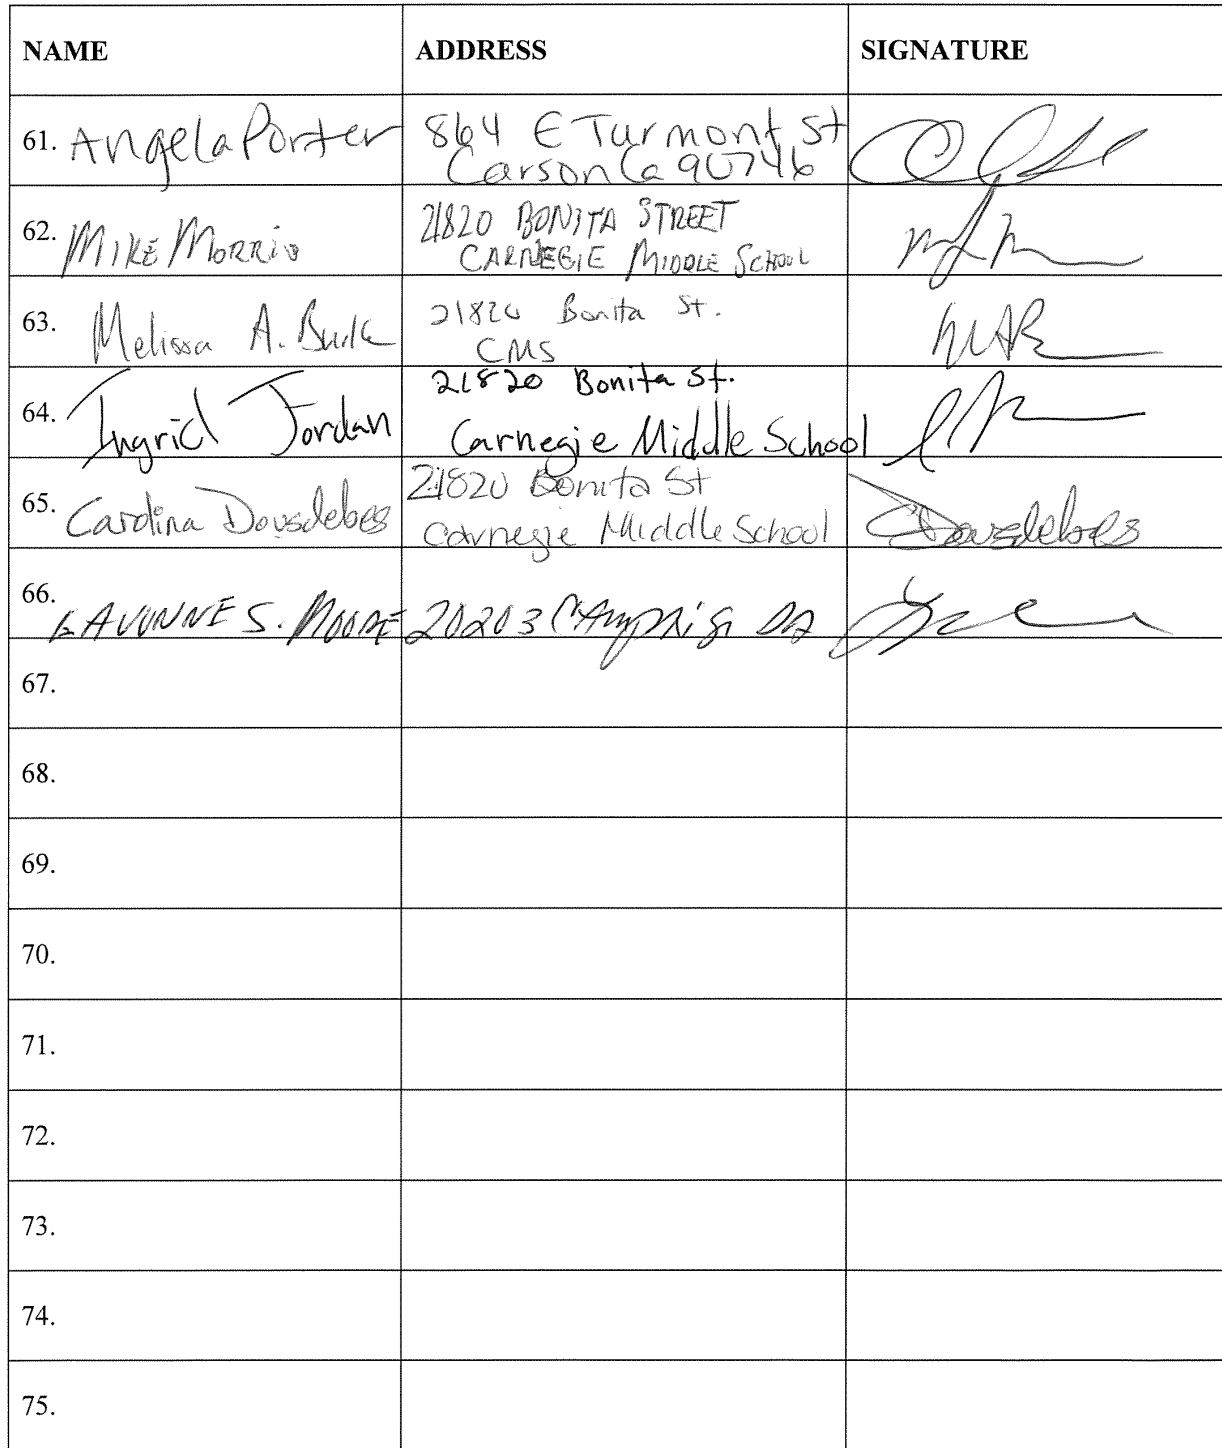 NAME ADDRESS SIGNATURE
61. Angela Porter 864 E Turmont St
Carson Ca 90746
62. MIKE MORRIS 21820 BONITA STREET
CARNEGIE MIDDLE SCHOOL
63. Melissa A. 21820 Bonita St.
CMS
64. Ingrid Jordan 21820 Bonita St.
Carnegie Middle School
65. Carolina Dousdebes 21820 Bonita St
Carnegie Middle School Dousdebes
66. LAVONNE S. MOORE 20203
67.
68.
69.
70.
71.
72.
73.
74.
75.